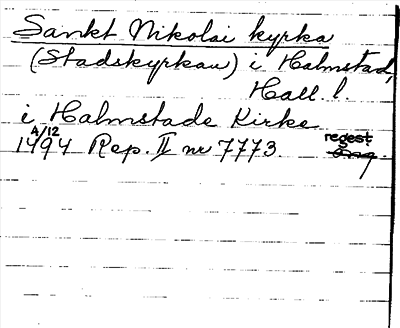 Sankt Nikolai kyrka
(Stadskyrkan) i Halmstad,
Hall l.
i Halmstade Kirke
4/12 regest.
1494 Rep. II nr 7773. Orig.